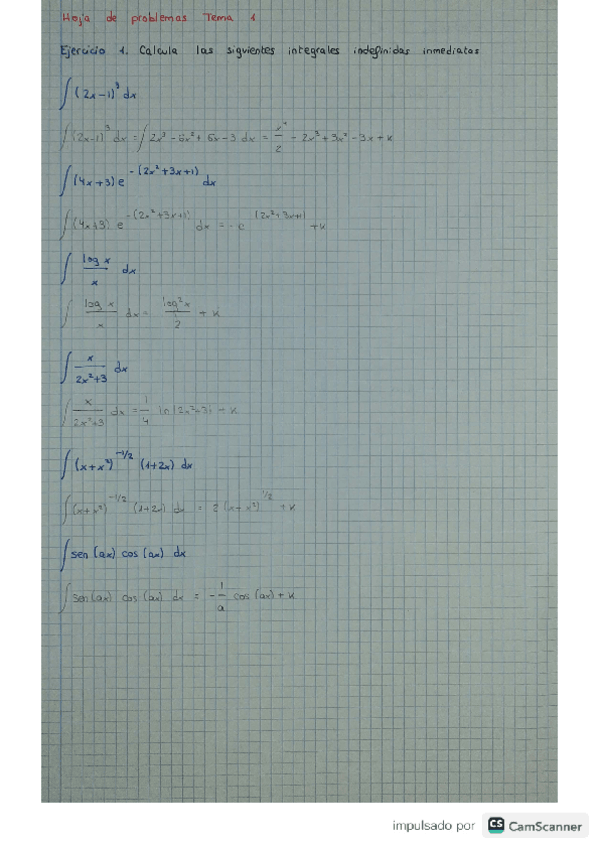 Hoja de problemas Tema 1
Ejercicio 1. Calcula las siguientes integrales indefinidas inmediatas
∫(2x-1)³ dx
∫(2x-1)³ dx = ∫2x³ - 6x² + 6x - 3 dx = x⁴/2 - 2x³ + 3x² - 3x + K
∫(4x+3) e^-(2x²+3x+1) dx
∫(4x+3) e^-(2x²+3x+1) dx = -e^(2x²+3x+1) + K
∫ log x / x dx
∫ log x / x dx = log²x / 2 + K
∫ x / 2x²+3 dx
∫ x / 2x²+3 dx = 1/4 ln|2x²+3| + K
∫(x+x²)^-1/2 (1+2x) dx
∫(x+x²)^-1/2 (1+2x) dx = 2(x+x²)^1/2 + K
∫sen(ax) cos(ax) dx
∫sen(ax) cos(ax) dx = -1/a cos(ax) + K
impulsado por CS CamScanner